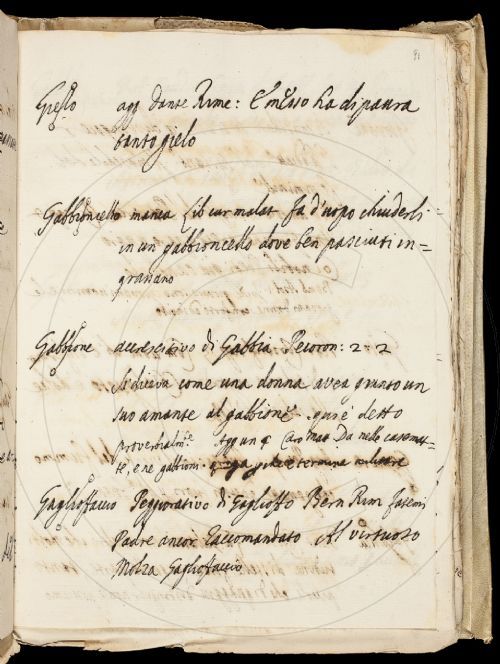 91
Gielo agg Dante Rime: E m'esso ha di paura
tanto gielo
Gabbioncello manca Lib cur malat Fa d'uopo chiuderli
in un gabbioncello dove ben pasciuti in=
grassano
Gabbione accrescitivo di Gabbia Pecoron: 2=2
Si diceva come una donna avea giunto un
suo amante al gabbione. qui è detto
proverbialm:e Agg un q Car Mat Da nelle casamat=
te, e ne gabbioni termine militare
Gaglioffaccio Peggiorativo di Gaglioffo Bern Rim Fatemi
Padre ancor Raccomandato Al virtuoso
Molza Gaglioffaccio